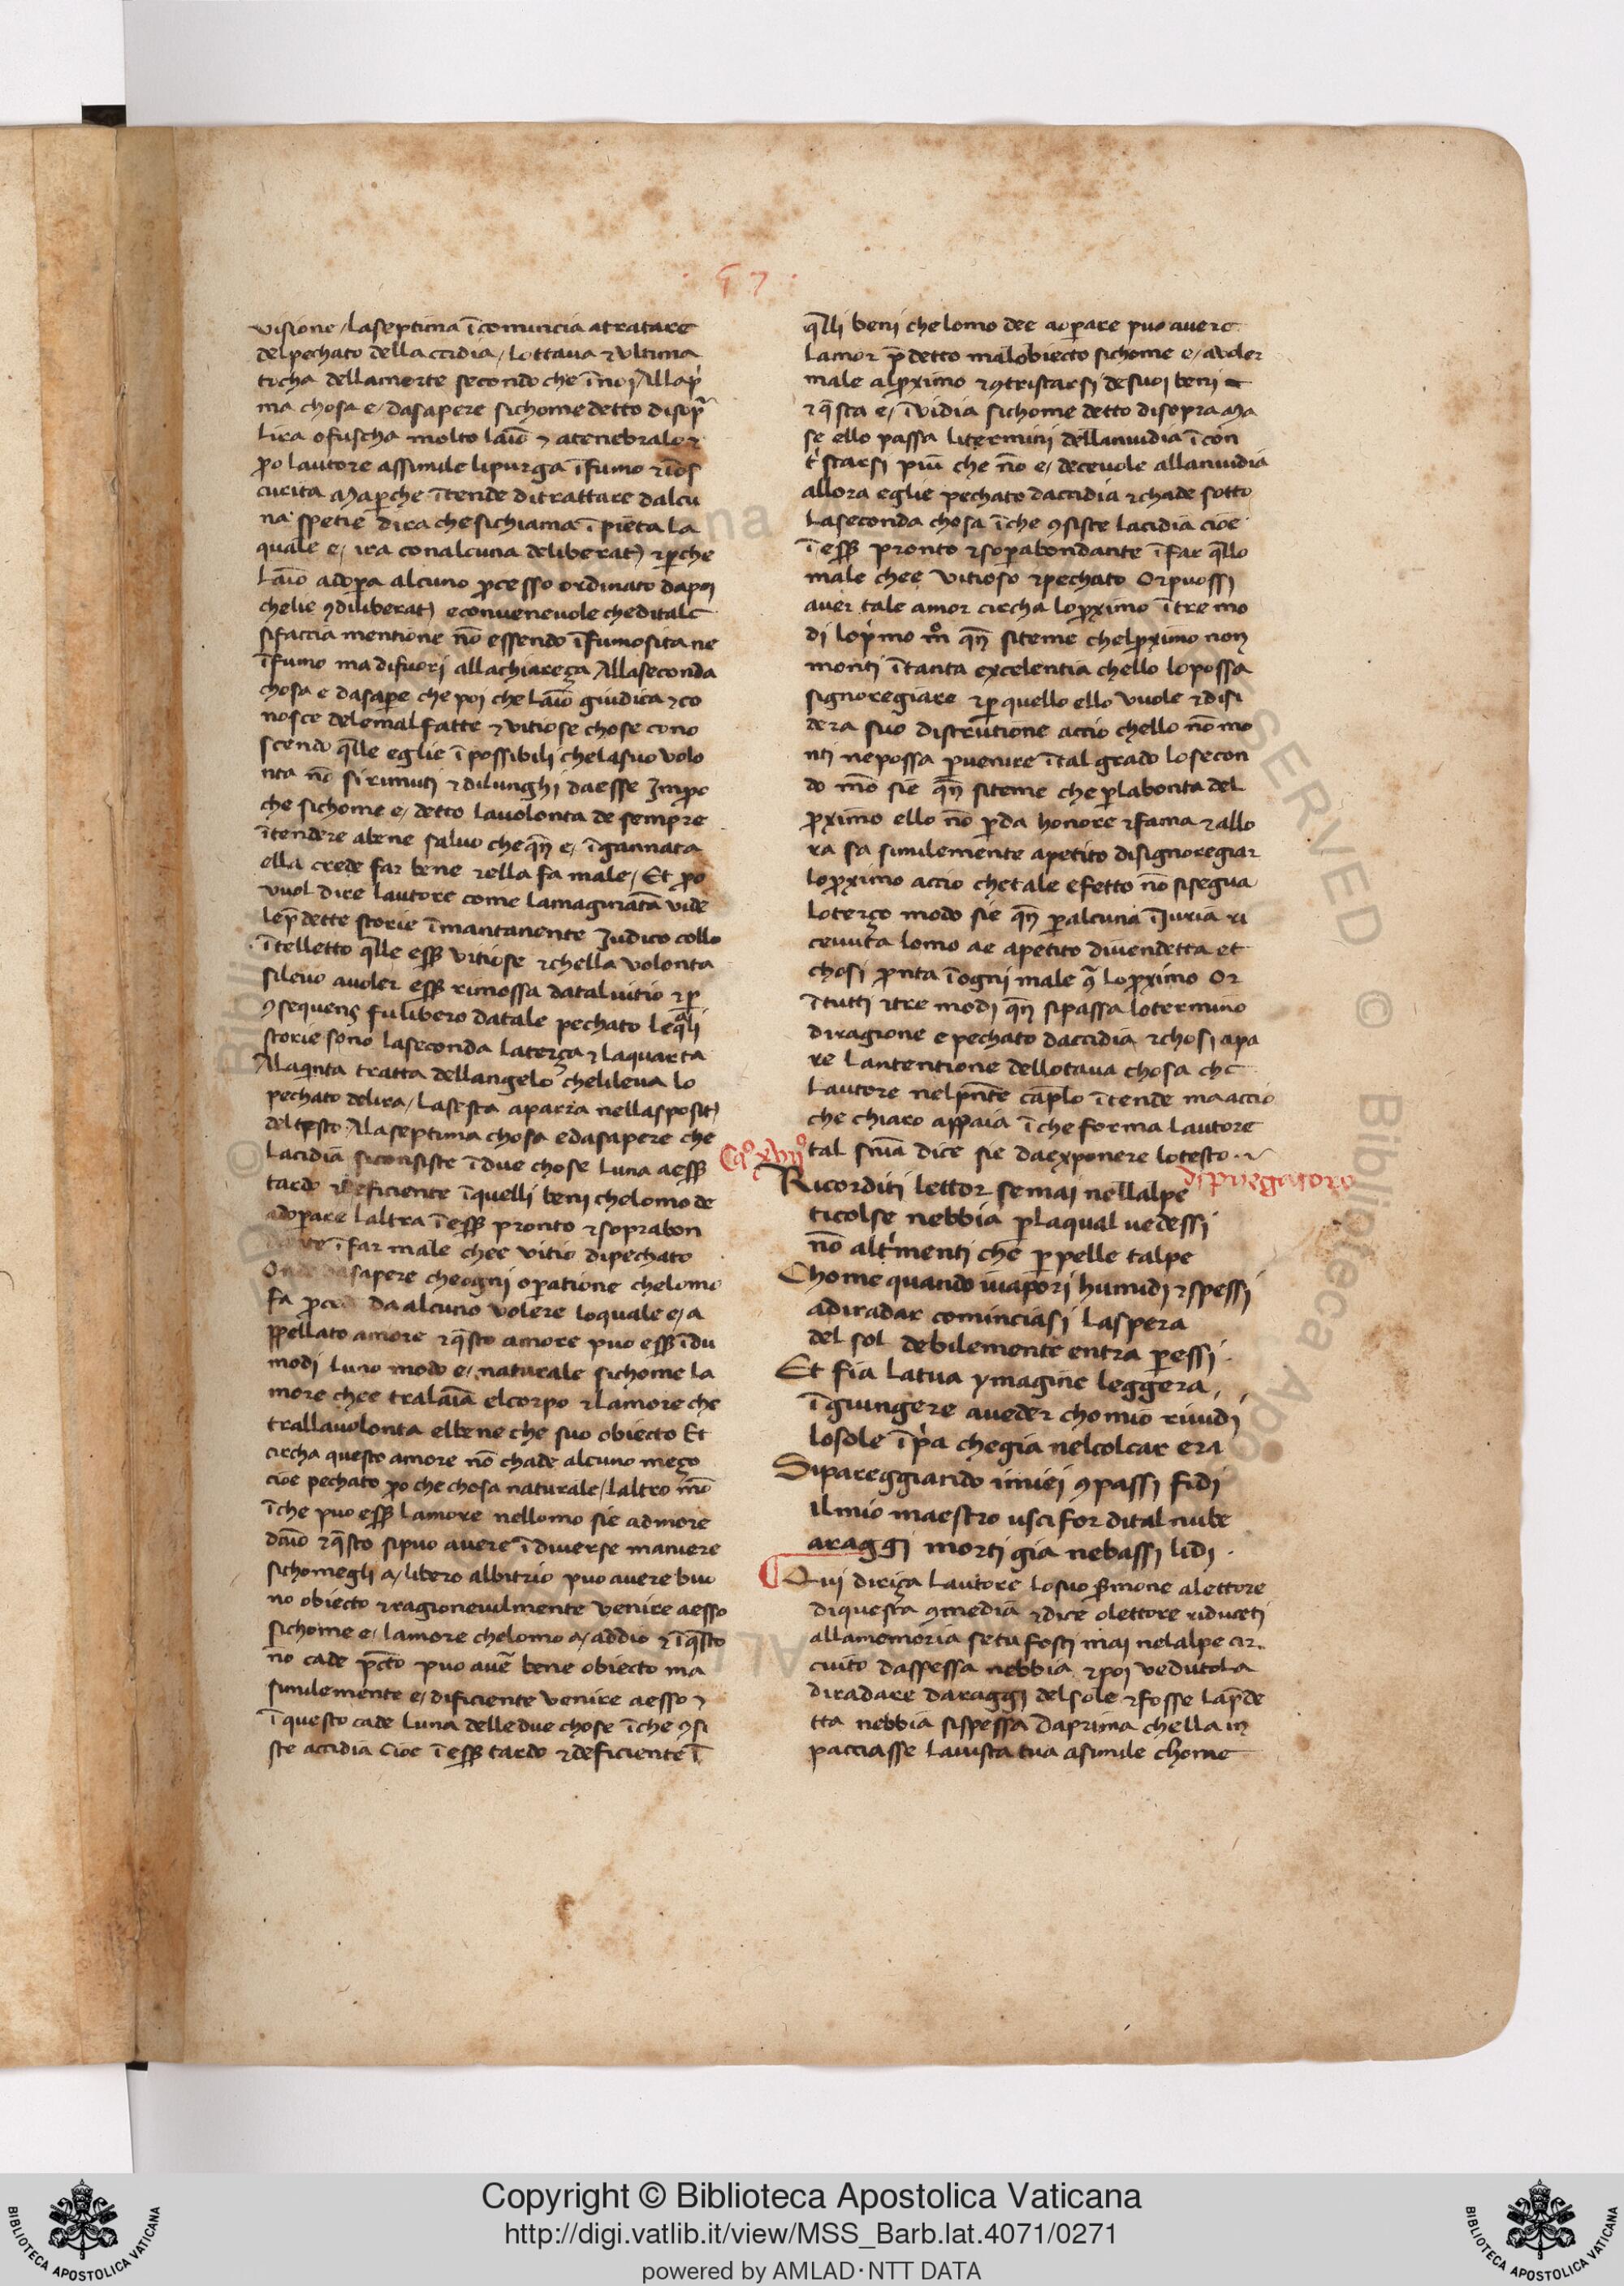 · 57 ·
visione / laseptima ī comuncia atratare
delpechato della ccidia / Lottaua ⁊ Vltima
toccha dellamorte secondo che ī noj Allap̓
ma chosa e / dasapere sichome detto disop̄
Lira ofuscha molto laīo ⁊ atenebralo ⁊
ꝑo lautore assimile lipurga ī fumo ⁊ īos
curita Maꝑche ītende ditrattare dalcu
na spetie dira che sichiama ī pieta La
quale e / ira conalcuna deliberat) ⁊ ꝑche
Laīo adoꝑa alcuno ꝓcesso ordinato dapoj
chelie ꝯdiliberat) e convenevole cheditale
sifaccia mentione nō essendo ī fumosita ne
ī fumo ma difuori allachiareça Allaseconda
chosa e dasaꝑe che poj che Laīo giudica ⁊ co
nosce delemal fatte ⁊ vitiose chose cono
scendo q̄lle eglie ī possibili chelasuo volo
nta nō si rimuti ⁊ dilunghj daesse Jmꝑo
che sichome e / detto Lavolonta de sempre
ītendere abene saluo che qn̄ e / īgannata
ella crede far bene ⁊ ella fa male / Et ꝑo
vuol dire Lautore come lamaginātā vide
lep̄dette storie īmantanente Judico collo
ītelletto q̄lle esß vitiose ⁊ chella volonta
sileuo auoler esß rimossa datal vitio ⁊ ꝑ
ꝯsequens fu libero datale pechato leq̄li
storie sono laseconda laterça ⁊ laquarta
Alaquinta tratta dellangelo chelileua lo
pechato delira / Lasesta aparra nellasposit)
del testo Alaseptima chosa edasapere che
Lacidia siconsiste ī due chose Luna aesß
tardo ⁊ deficiente ī quelli benj chelomo de
adoꝑare Laltra ī esß pronto ⁊ soprabon
dante ī far male chee vitio dipechato
Onde dasapere cheognj oꝑatione chelomo
fa ꝓcede da alcuno volere loquale e / a
ppellato amore ⁊ q̄sto amore puo esß ī du
modi Luno modo e / naturale sichome la
more chee tralaīa elcorpo ⁊ Lamore che
trallauolonta elbene che suo obiecto Et
circha questo amore nō chade alcuno meço
cioe pechato ꝑo che chosa naturale / Laltro mō
ī che puo esß Lamore nellomo sie admore
daīo ⁊ q̄sto sipuo auere ī diuerse maniere
sichomegli a / libero albitrio puo auere buo
no obiecto ⁊ ragioneuilmente venire aesso
sichome e / lamore chelomo a / addio ⁊ ī q̄sto
no cade pcc̄to puo auē bene obiecto ma
similemente e / dificiente venire aesso ⁊
ī questo cade Luna delledue chose ī che ꝯsi
ste accidia Cioe ī esß tardo ⁊ deficiente ī
q̄lli benj chelomo dee adoꝑare puo auere
Lamor p̄detto malobiecto sichome e / auoler
male alꝓximo ⁊ ꝯtristarsj desuoj benj
⁊ q̄sta e / īuidia sichome detto disopra Ma
se ello passa litterminj dellanuidia ī con
t̓starsj piu che nō e / deceuole allanuidia
allora eglie pechato daccidia ⁊ chade sotto
Laseconda chosa ī che ꝯsiste lacidia cioe
ī esß pronto ⁊ soꝑabondante ī far q̄llo
male chee Vitioso ⁊ pechato Or puossj
auer tale amor circha loꝓximo ī tre mo
di lop̓mo mō qn̄ siteme chelꝓximo non
monti ī tanta excelentia chello lopossa
signoregiare ⁊ ꝑ quello ello vuole ⁊ disi
dera suo distrutione accio chello nō mo
ntj nepossa ꝑuenire ī tal grado Losecon
do mō sie qn̄ siteme che ꝑlabonta del
ꝓximo ello nō ꝑda honore ⁊ fama ⁊ allo
ra sa similemente apetito disignoregiar
loꝓximo accio chetale efetto nō sisegua
Loterço modo sie qn̄ ꝑalcuna īJuria ri
ceuuta lomo ae apetito diuendetta et
chosi ꝓnta ī ogni male ꝯ̄ loꝓximo Or
ī tutti ⁊ tre modj qn̄ sipassa lotermino
diragione e pechato daccidia ⁊ chosi apa
re Lantentione dellotaua chosa che
Lautore nelpn̄te capl̄o ītende ma accio
che chiaro appaia ī che forma Lautore
tal sn̄ia dice sie daexponere lotesto · ~
Cº xvijº
di purgatoro
Ricorditi lettor se mai nellalpe
ticolse nebbia ꝑlaqual uedessj
nō alt̓menti che ꝑ pelle talpe
Chome quando iuapori humidj ⁊ spessj
adiradar cominciasj laspera
del sol debilemente entra ꝑessj ·
Et fia latua ymagine leggera,
ī giungere aueder chomio riuidj
losole ī p̓a chegia nelcolcar era
Sipareggiando imiei ꝯpassj fidj
ilmio maestro usci for dital nube
araggj mortj gia nebassj lidj ·
Qui diriça Lautore Losuo s̄mone alettore
diquesta ꝯmedia ⁊ dice olettore riducetj
allamemoria setu fostj mai nelalpe cir
cuito daspessa nebbia ⁊ poj vedutola
diradare daraggj delsole ⁊ fosse lap̄de
tta nebbia sispessa daprima chella in
pacciasse Lauista tua asimile chome
Copyright © Biblioteca Apostolica Vaticana
http://digi.vatlib.it/view/MSS_Barb.lat.4071/0271
powered by AMLAD·NTT DATA
BIBLIOTECA APOSTOLICA VATICANA
BIBLIOTECA APOSTOLICA VATICANA